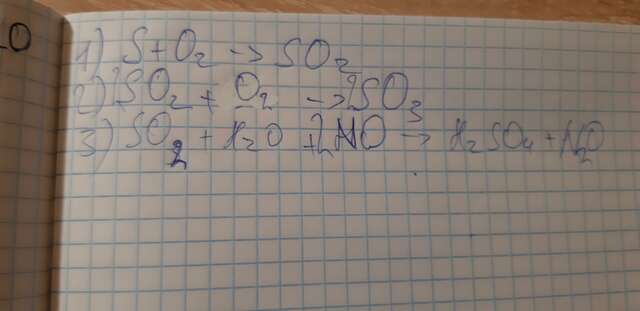 1) S+O2 -> SO2
2) 2SO2 + O2 -> 2SO3
3) SO2 + H2O + 2NO -> H2SO4 + N2O